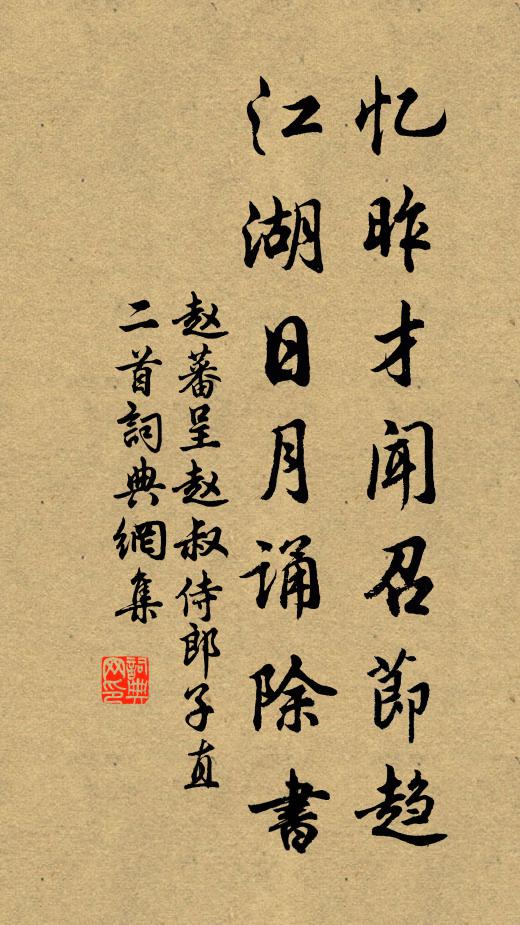 忆昨才闻召节趋
江湖日月诵除書
赵蕃呈赵叔侍郎子直
二首詞典網集
詞典網印